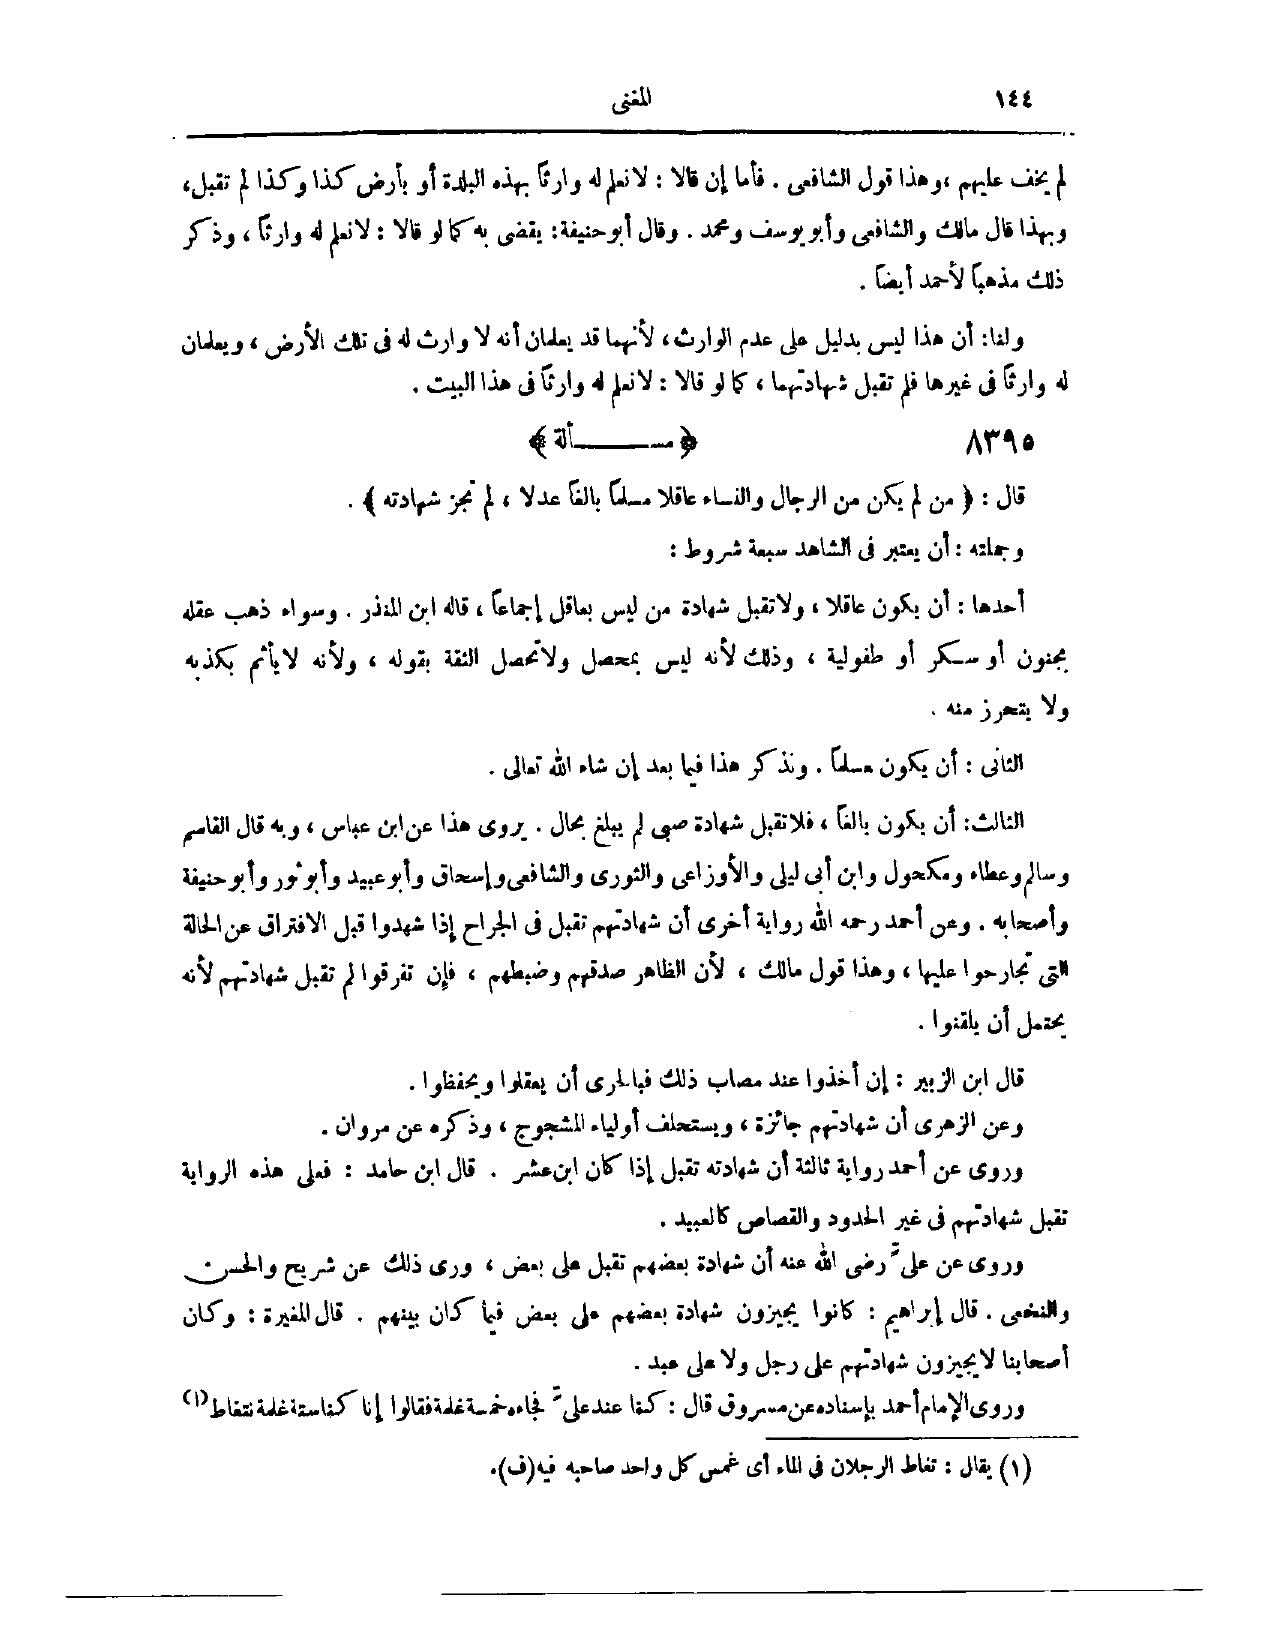 ١٤٤
المغنى
لم يخف عليهم ، وهذا قول الشافعى . فأما إن قالا : لا نعلم له وارثاً بهذه البلدة أو بأرض كذا وكذا لم تقبل ،
وبهذا قال مالك والشافعى وأبو يوسف ومحمد . وقال أبو حنيفة : يقضى به كما لو قالا : لا نعلم له وارثاً ، وذكر
ذلك مذهباً لأحمد أيضاً .
ولنا : أن هذا ليس بدليل على عدم الوارث ، لأنهما قد يعلمان أنه لا وارث له فى تلك الأرض ، ويعلمان
له وارثاً فى غيرها فلم تقبل شهادتهما ، كما لو قالا : لا نعلم له وارثاً فى هذا البيت .
٨٣٩٥ ﴿ مســـــألة ﴾
قال : ( من لم يكن من الرجال والنساء عاقلا مسلماً بالغاً عدلا ، لم تجز شهادته ) .
وجملته : أن يعتبر فى الشاهد سبعة شروط :
أحدها : أن يكون عاقلا ، ولا تقبل شهادة من ليس بعاقل إجماعاً ، قاله ابن المنذر . وسواء ذهب عقله
بجنون أو سكر أو طفولية ، وذلك لأنه ليس بمحصل ولا تحصل الثقة بقوله ، ولأنه لا يأثم بكذبه
ولا يتحرز منه .
الثانى : أن يكون مسلماً . ونذكر هذا فيما بعد إن شاء الله تعالى .
الثالث : أن يكون بالغاً ، فلا تقبل شهادة صبى لم يبلغ بحال . يروى هذا عن ابن عباس ، وبه قال القاسم
وسالم وعطاء ومكحول وابن أبى ليلى والأوزاعى والثورى والشافعى وإسحاق وأبو عبيد وأبو ثور وأبو حنيفة
وأصحابه . وعن أحمد رحمه الله رواية أخرى أن شهادتهم تقبل فى الجراح إذا شهدوا قبل الافتراق عن الحالة
التى تجارحوا عليها ، وهذا قول مالك ، لأن الظاهر صدقهم وضبطهم ، فإن تفرقوا لم تقبل شهادتهم لأنه
يحتمل أن يلقنوا .
قال ابن الزبير : إن أخذوا عند مصاب ذلك فبالحرى أن يعقلوا ويحفظوا .
وعن الزهرى أن شهادتهم جائزة ، ويستحلف أولياء المشجوج ، وذكره عن مروان .
وروى عن أحمد رواية ثالثة أن شهادته تقبل إذا كان ابن عشر . قال ابن حامد : فعلى هذه الرواية
تقبل شهادتهم فى غير الحدود والقصاص كالعبيد .
وروى عن علىّ رضى الله عنه أن شهادة بعضهم تقبل على بعض ، ورى ذلك عن شريح والحسن
والنخعى . قال إبراهيم : كانوا يجيزون شهادة بعضهم على بعض فيما كان بينهم . قال المغيرة : وكان
أصحابنا لا يجيزون شهادتهم على رجل ولا على عبد .
وروى الإمام أحمد بإسناده عن مسروق قال : كنا عند علىّ فجاءه خمسة غلمة فقالوا إنا كنا ستة غلمة نتغاط (١)
(١) يقال : تغاط الرجلان فى الماء أى غمس كل واحد صاحبه فيه (ف).